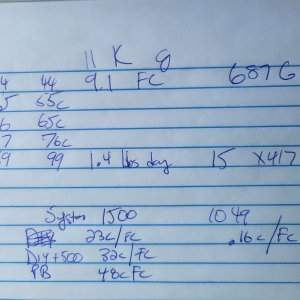 11 K g
4 44 9.1 FC 6876
5 55c
6 65c
7 76c
9 99 1.4 lbs day 15 x417
System 1500 1049
23c/FC .16c/FC
DIY+500 32c/FC
PB 48c FC